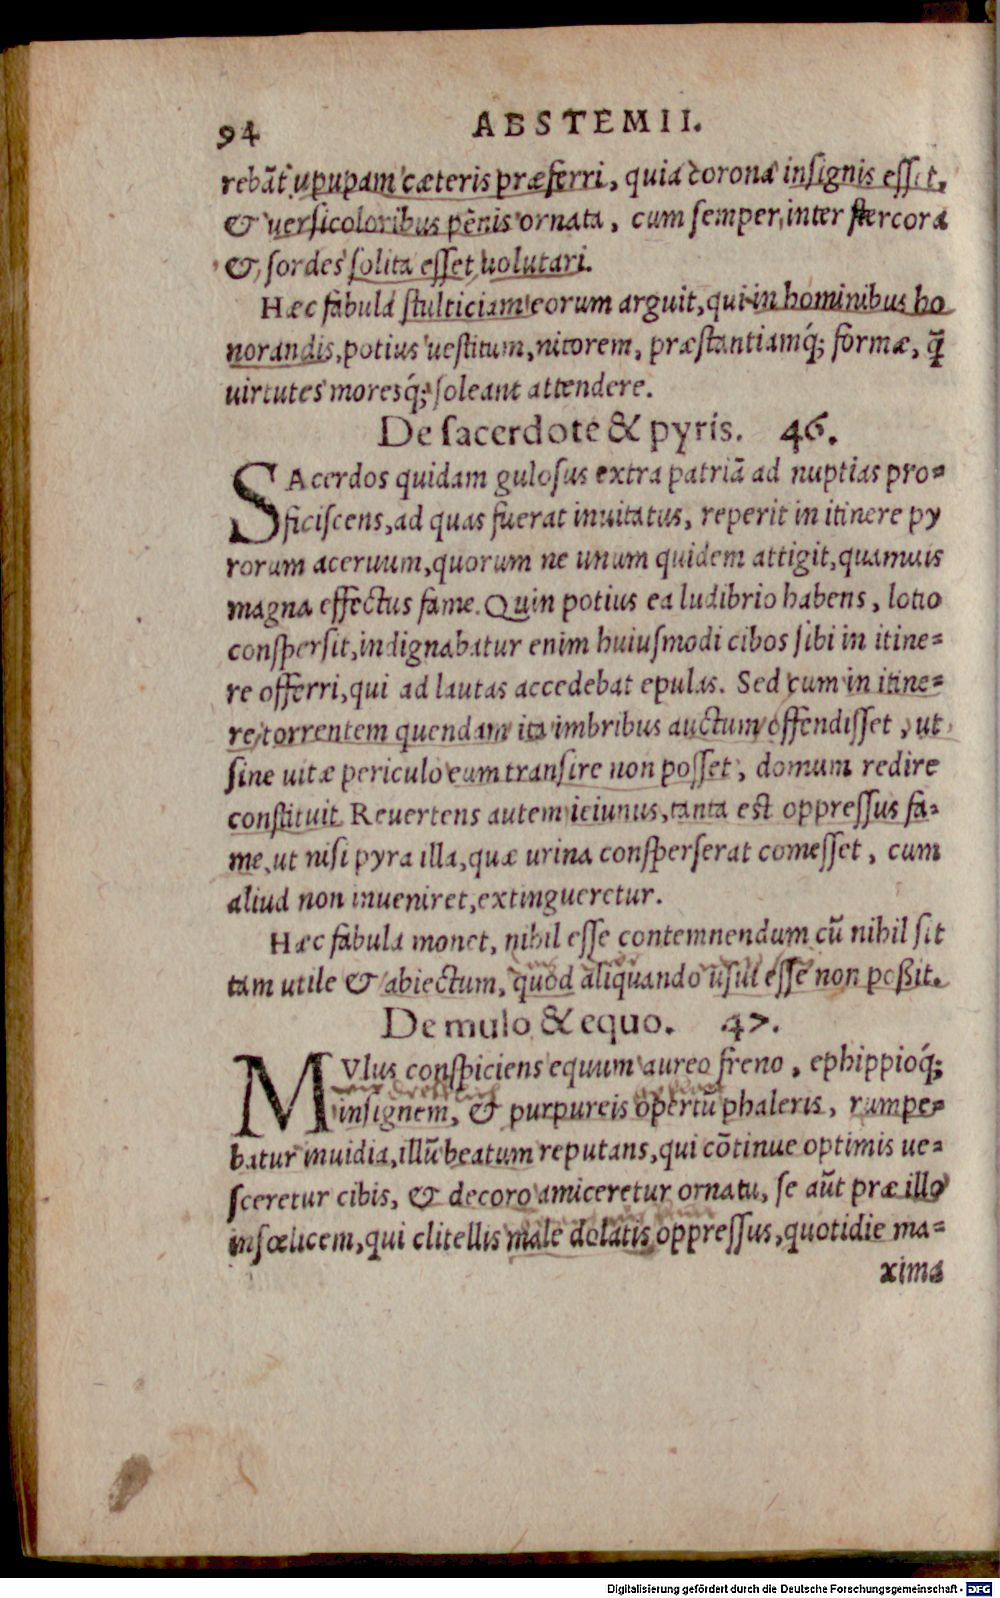 94 ABSTEMII.
rebãt upupam cæteris præferri, quia corona insignis esset,
& uersicoloribus pēnis ornata, cum semper inter stercora
&, sordes solita esset uolutari.
Hæc fabula stulticiam eorum arguit, qui in hominibus ho
norandis, potius uestitum, nitorem, præstantiamq́; formæ, q̃
uirtutes moresq́; soleant attendere.
De sacerdote & pyris. 46.
SAcerdos quidam gulosus extra patriã ad nuptias pro-
ficiscens, ad quas fuerat inuitatus, reperit in itinere py
rorum aceruum, quorum ne unum quidem attigit, quamuis
magna effectus fame. Quin potius ea ludibrio habens, lotio
conspersit, indignabatur enim huiusmodi cibos sibi in itine-
re offerri, qui ad lautas accedebat epulas. Sed cum in itine-
re torrentem quendam ita imbribus auctum offendisset, ut
sine uitæ periculo eum transire non posset, domum redire
constituit. Reuertens autem ieiunus, tanta est oppressus fa-
me, ut nisi pyra illa, quæ urina consperserat comesset, cum
aliud non inueniret, extingueretur.
Hæc fabula monet, nihil esse contemnendum cū nihil sit
tam utile & abiectum, quod aliquando usui esse non poßit.
De mulo & equo. 47.
MVlus conspiciens equum aureo freno, ephippioq́;
insignem, & purpureis opertū phaleris, rumpe-
batur inuidia, illū beatum reputans, qui cōtinue optimis ue-
sceretur cibis, & decoro amiceretur ornatu, se aūt præ illo
infœlicem, qui clitellis male dolatis oppressus, quotidie ma-
xima
Digitalisierung gefördert durch die Deutsche Forschungsgemeinschaft - DFG